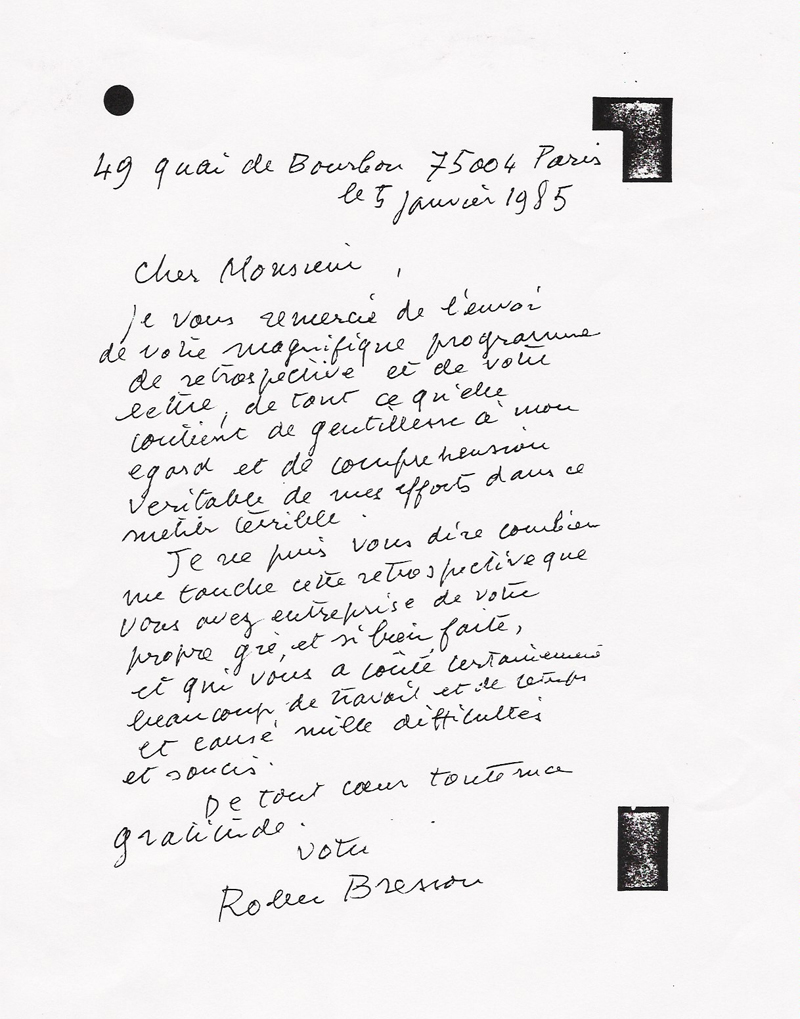 49 quai de Bourbon 75004 Paris
le 5 janvier 1985
Cher Monsieur,
je vous remercie de l'envoi
de votre magnifique programme
de retrospective et de votre
lettre, de tout ce qu'elle
contient de gentillesse à mon
egard et de comprehension
veritable de mes efforts dans ce
metier terrible.
Je ne puis vous dire combien
me touche cette retrospective que
vous avez entreprise de votre
propre gré, et si bien faite,
et qui vous a coûté certainement
beaucoup de travail et de temps
et causé mille difficultés
et soucis.
De tout cœur toute ma
gratitude.
votre
Robert Bresson